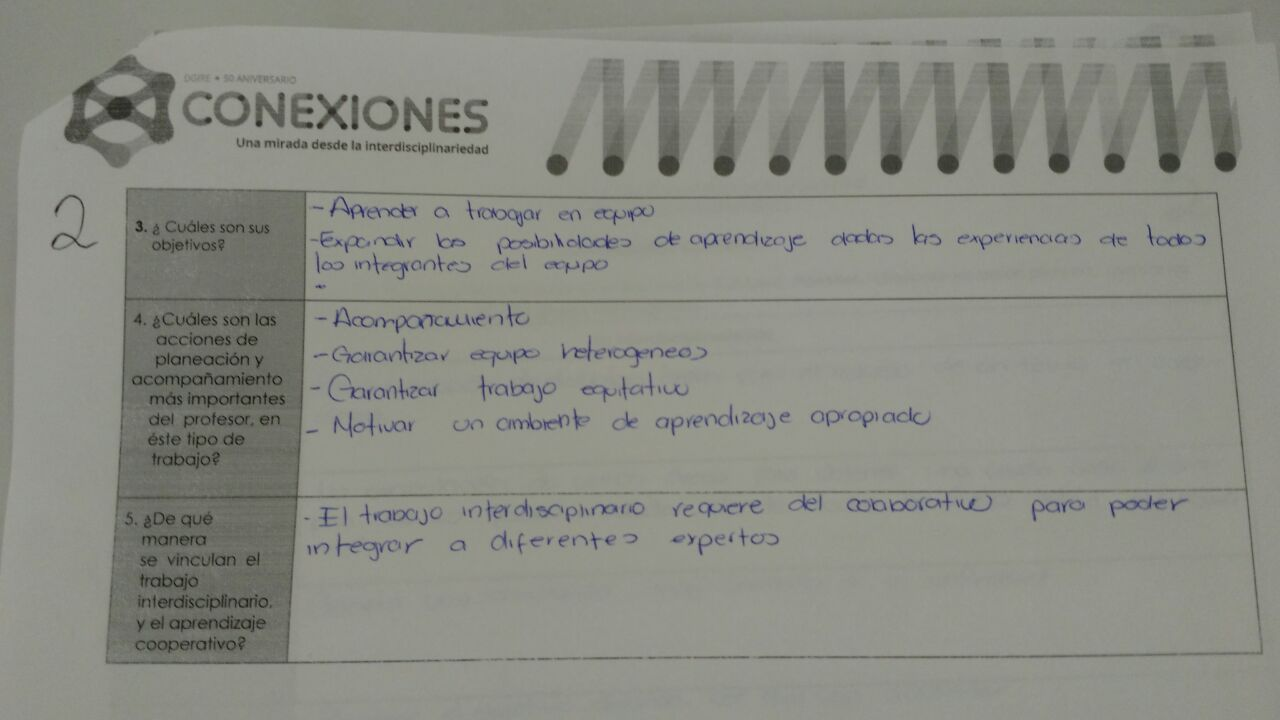 DGIRE • 50 ANIVERSARIO
CONEXIONES
Una mirada desde la interdisciplinariedad
2
3. ¿ Cuáles son sus
objetivos?
- Aprender a trabajar en equipo
- Expandir las posibilidades de aprendizaje dadas las experiencias de todos
los integrantes del equipo
-
4. ¿Cuáles son las
acciones de
planeación y
acompañamiento
más importantes
del profesor, en
éste tipo de
trabajo?
- Acompañamiento
- Garantizar equipo heterogeneos
- Garantizar trabajo equitativo
- Motivar un ambiente de aprendizaje apropiado
5. ¿De qué
manera
se vinculan el
trabajo
interdisciplinario,
y el aprendizaje
cooperativo?
- El trabajo interdisciplinario requiere del colaborativo para poder
integrar a diferentes expertos